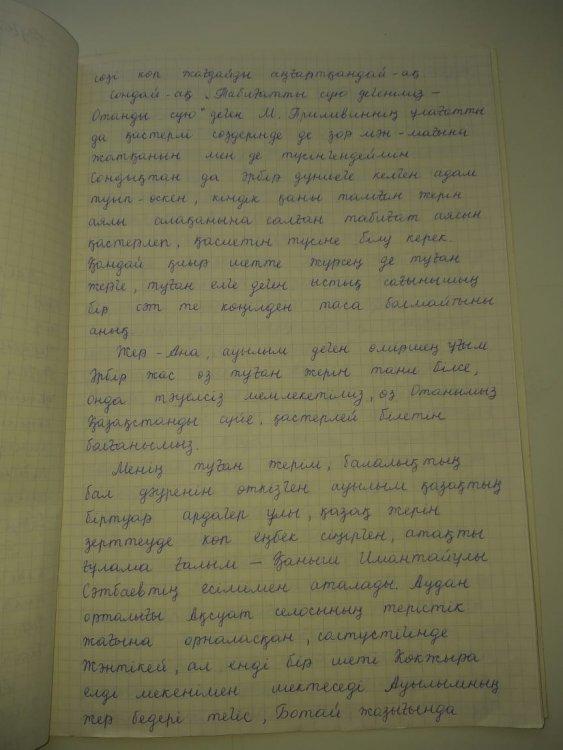 сөзі көп жағдайды аңғартқандай-ақ.
Сондай-ақ „Табиғатты сүю дегеніміз –
Отанды сүю" деген М. Пришвиннің ұлағатты
да қастерлі сөздерінде де зор мән-мағына
жатқанын мен де түсінгендеймін
Сондықтан да әрбір дүниеге келген адам
туып-өскен, кіндік қаны тамған жерін
аялы алақанына салған табиғат аясын
қастерлеп, қасиетін түсіне білу керек.
Қандай қиыр шетте жүрсең де туған
жерге, туған елге деген ыстық сағынышың
бір сәт те көңілден таса болмайтыны
анық.
Жер-Ана, ауылым деген өлшшең ұғым
Әрбір жас өз туған жерін тани білсе,
онда тәуелсіз мемлекетіміз, өз Отанымыз
Қазақстанды сүйе, қастерлей білетін
болғанымыз.
Менің туған жерім, балалықтың
бал дәуренін өткізген ауылым қазақтың
біртуар ардагер ұлы, қазақ жерін
зерттеуде көп еңбек сіңірген, атақты
ғұлама ғалым – Қаныш Имантайұлы
Сәтбаевтің есімімен аталады. Аудан
орталығы Ақсуат селосының терістік
жағына орналасқан, солтүстігінде
Жәнтікей, ал енді бір шеті Көкжыра
елді мекенімен шектеседі Ауылымның
жер бедері тегіс, Ботай жазығында